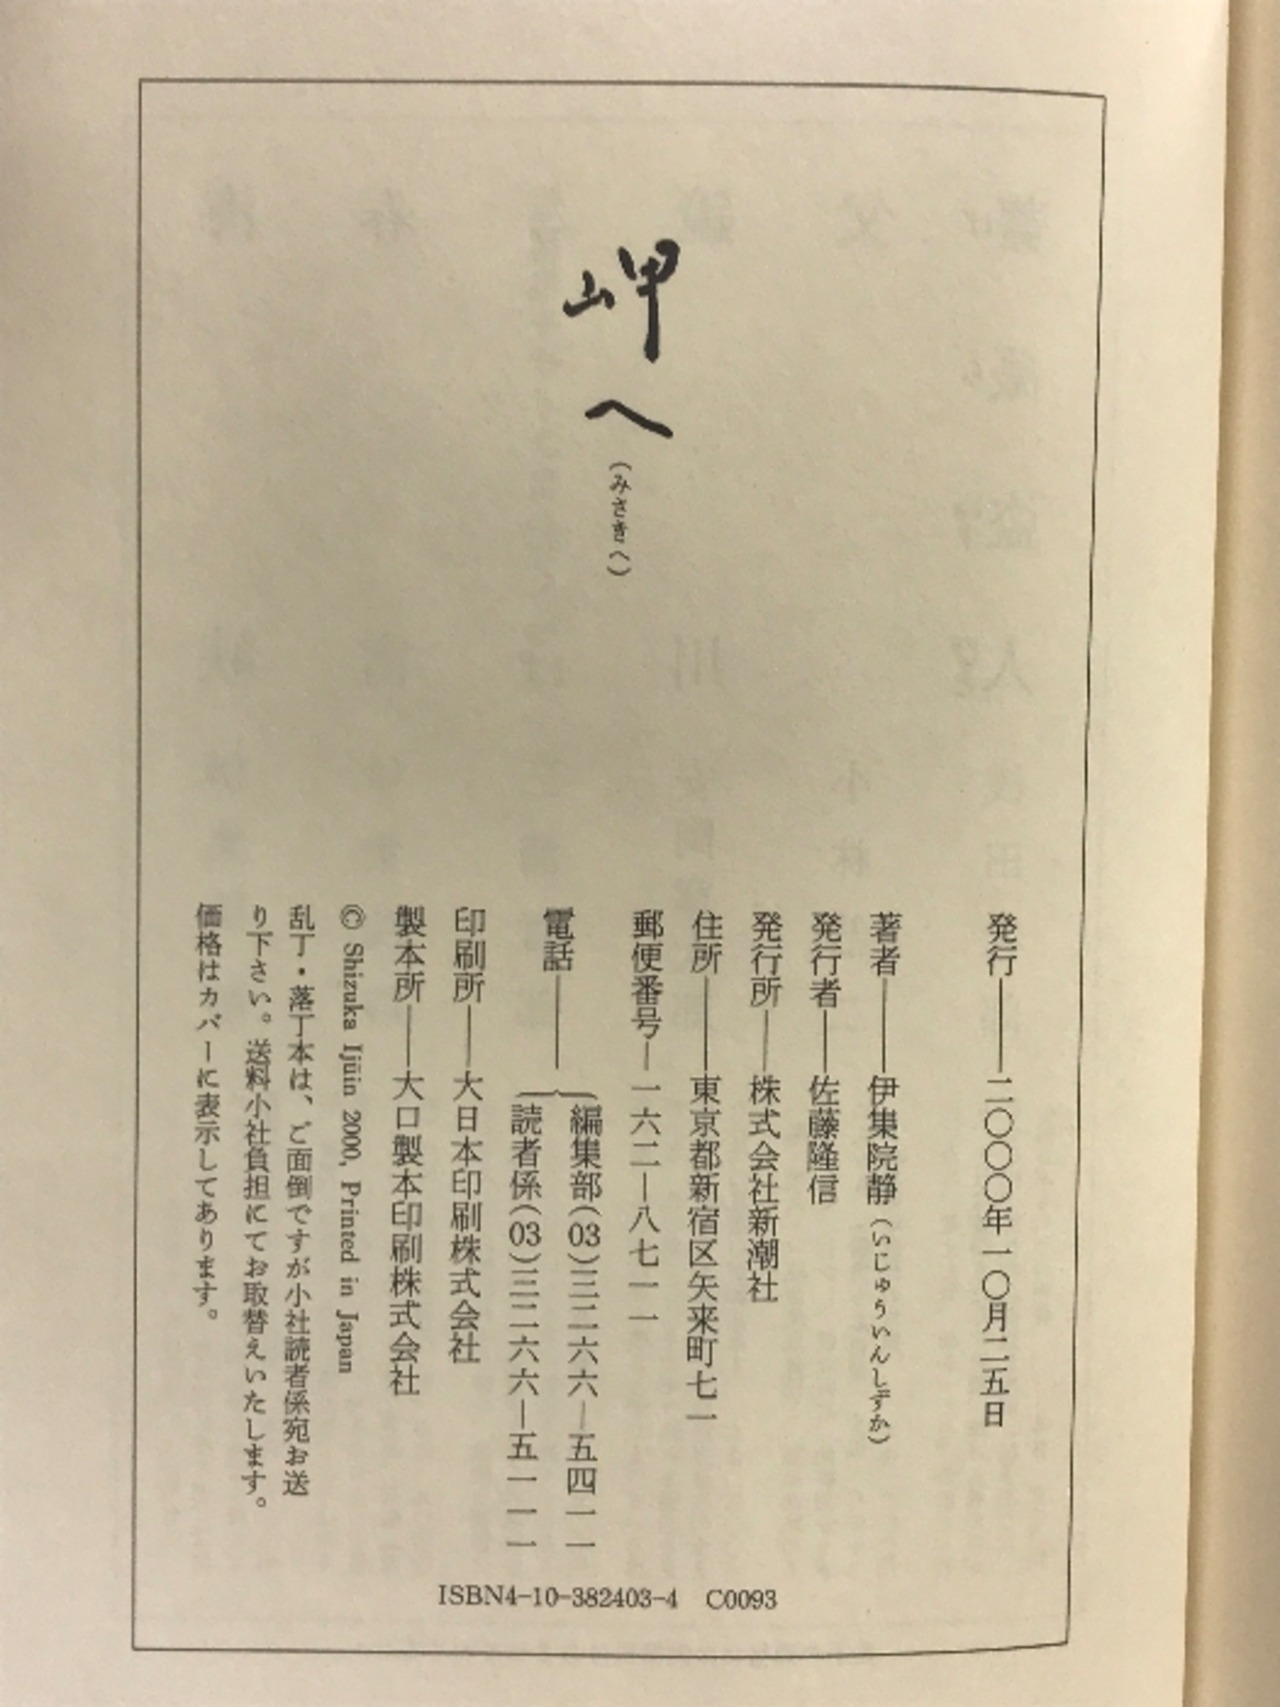 岬へ
（みさきへ）
発行――二〇〇〇年一〇月二五日
著者――伊集院静（いじゅういんしずか）
発行者――佐藤隆信
発行所――株式会社新潮社
住所――東京都新宿区矢来町七一
郵便番号―一六二―八七一一
電話――
編集部(03)三二六六―五四一一
読者係(03)三二六六―五一一一
印刷所――大日本印刷株式会社
製本所――大口製本印刷株式会社
© Shizuka Ijūin 2000, Printed in Japan
乱丁・落丁本は、ご面倒ですが小社読者係宛お送
り下さい。送料小社負担にてお取替えいたします。
価格はカバーに表示してあります。
ISBN4-10-382403-4 C0093